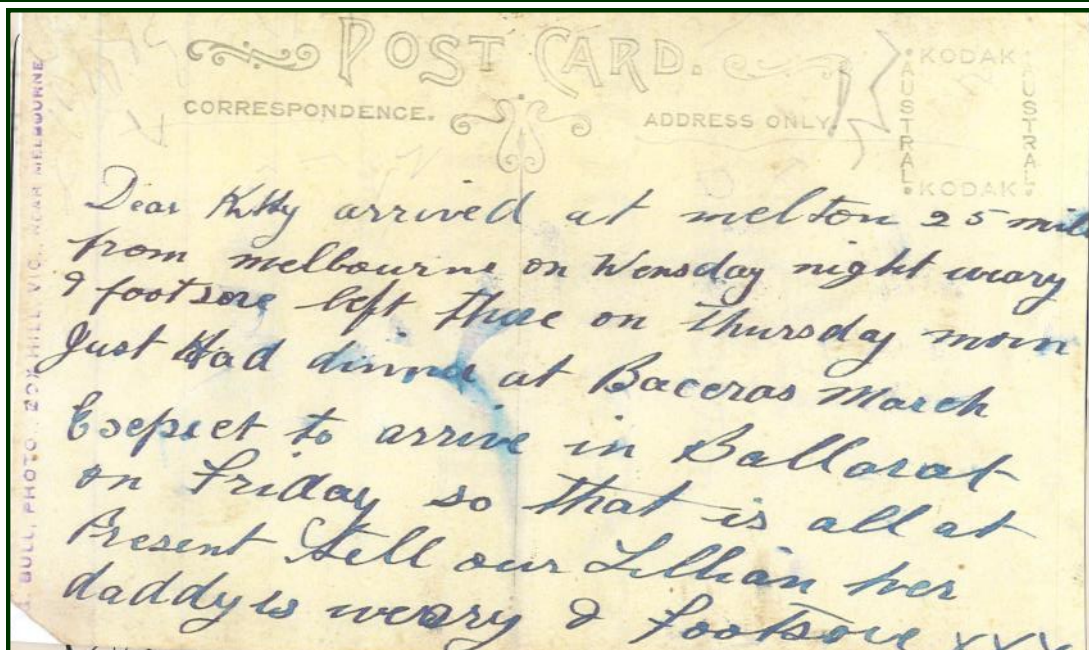 POST CARD.
CORRESPONDENCE.
ADDRESS ONLY.
KODAK
AUSTRAL
AUSTRAL
KODAK
BULL, PHOTO., BOX HILL, VIC., NEAR MELBOURNE
Dear Kitty arrived at melton 25 mile
from melbourne on Wensday night weary
& footsore left there on thursday morn
Just Had dinner at Baceras March
Exepect to arrive in Ballarat
on Friday so that is all at
Present tell our Lillian her
daddy is weary & footsore XXX